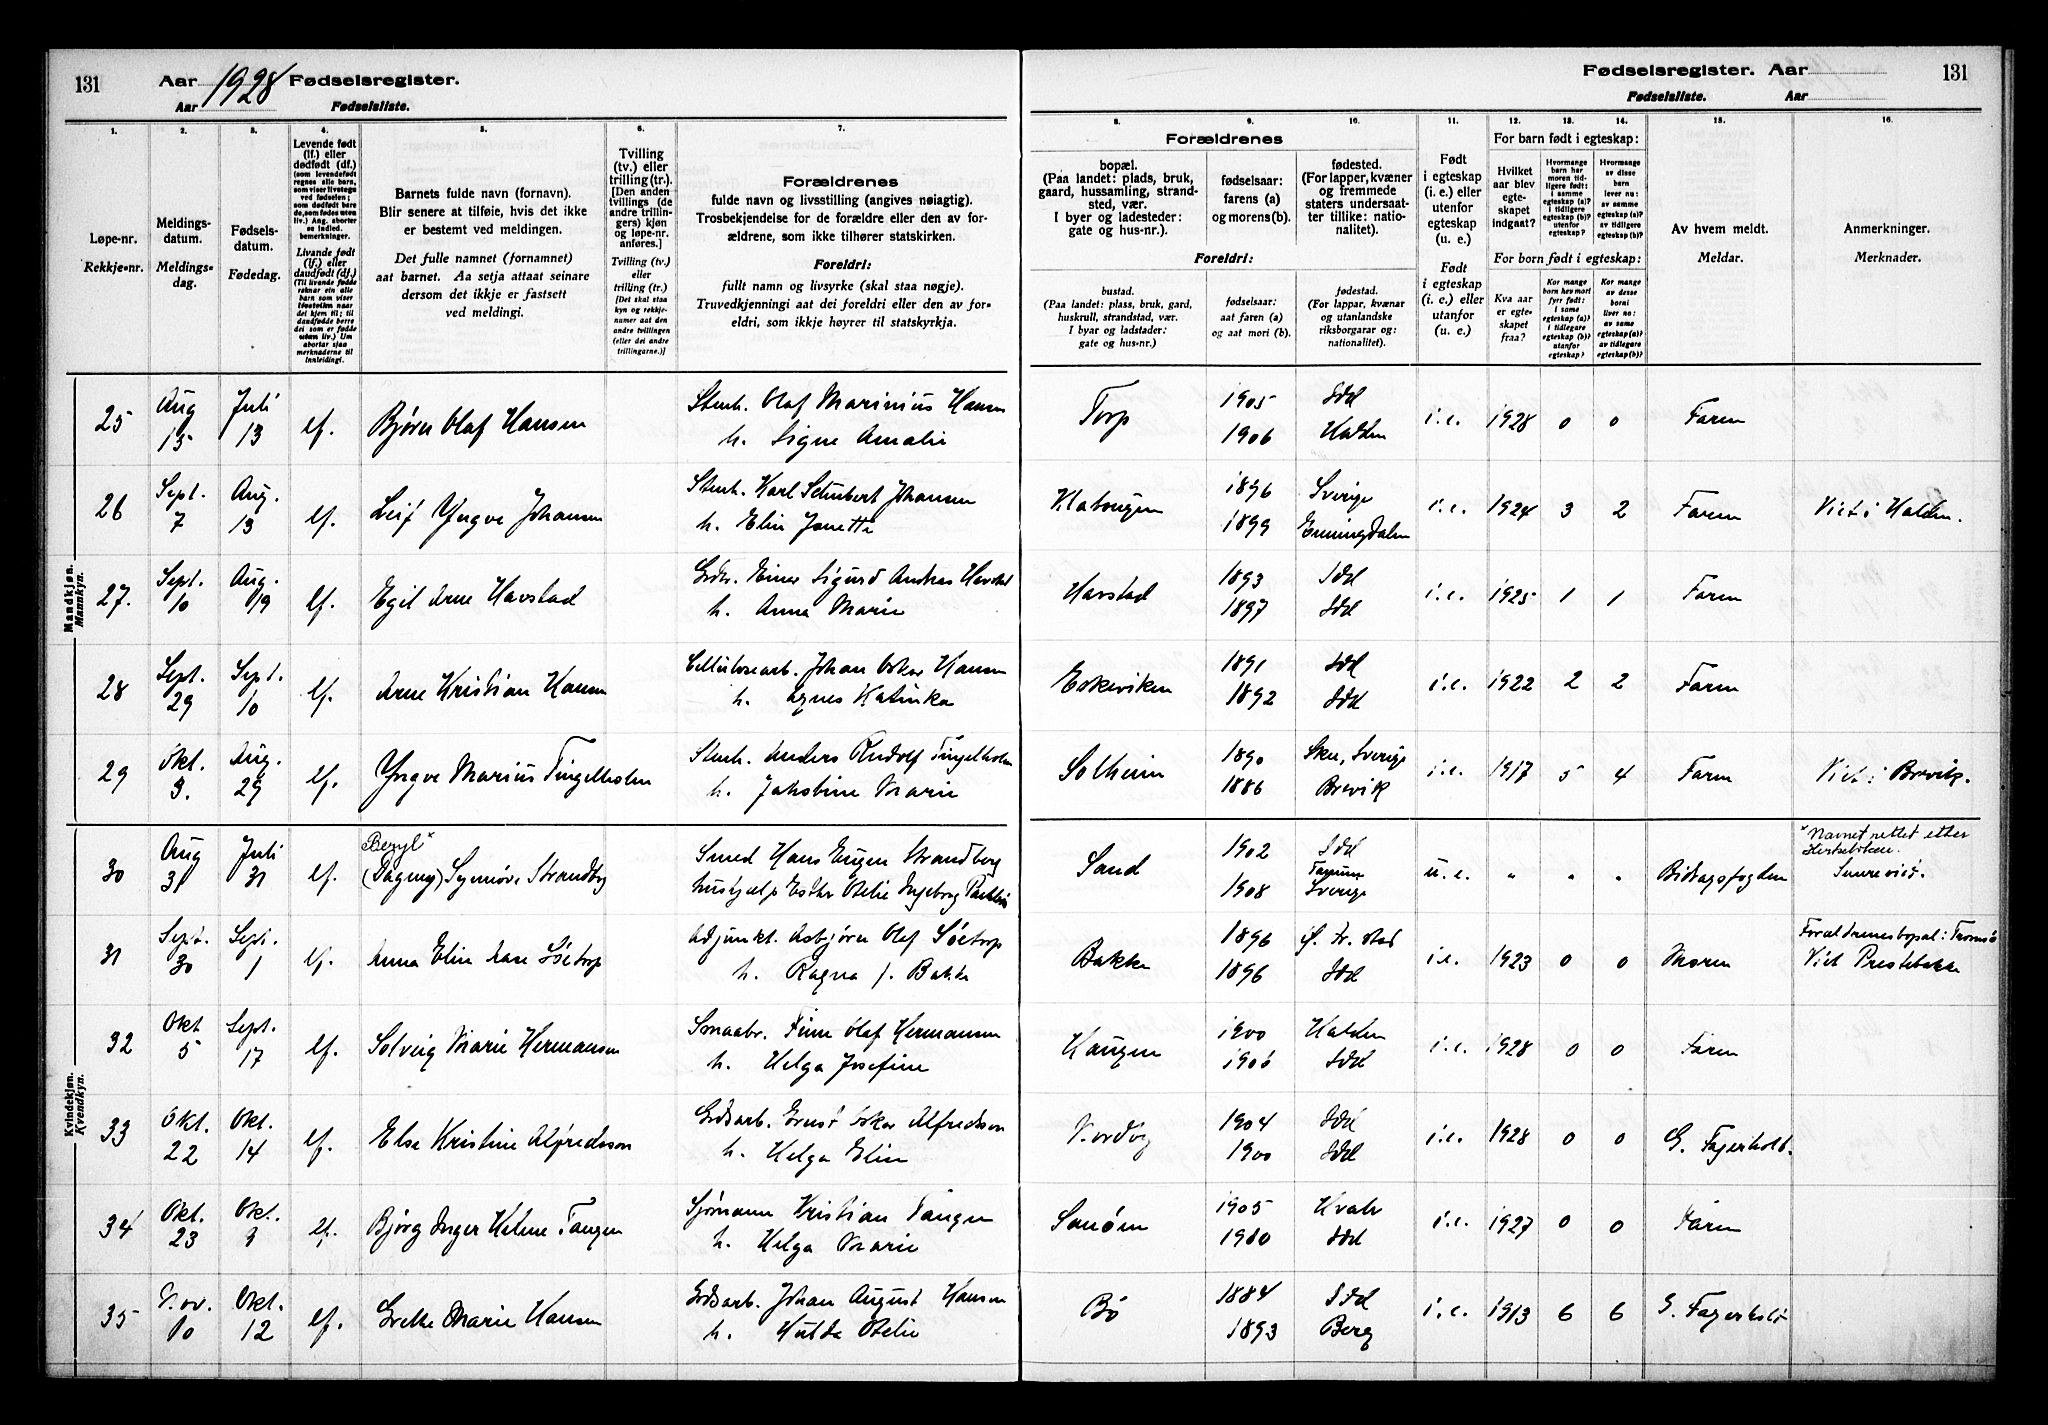 131 Aar 1928 Fødselsregister.
Aar Fødselsliste.
1. 2. 3. 4. 5. 6. 7.
Løpe-nr.
Rekkje-nr.
Meldings-
datum.
Meldings-
dag.
Fødsels-
datum.
Fødedag.
Levende født
(lf.) eller
dødfødt (df.)
Livande født
(lf.) eller
daudfødt (df.)
Barnets fulde navn (fornavn).
Blir senere at tilføie, hvis det ikke
er bestemt ved meldingen.
Det fulle namnet (fornamnet)
aat barnet. Aa setja attaat seinare
dersom det ikkje er fastsett
ved meldingi.
Tvilling
(tv.) eller
trilling (tr.).
[Den anden
tvillings (de
andre trillin-
gers) kjøn
og løpe-nr.
anføres.]
Tvilling (tv.)
eller
trilling (tr.)
[Det skal staa
kyn og rekkje-
numer aat den
andre tvillingen
(eller dei andre
trillingarne.)]
Forældrenes
fulde navn og livsstilling (angives nøiagtig).
Trosbekjendelse for de forældre eller den av for-
ældrene, som ikke tilhører statskirken.
Foreldri:
fullt namn og livsyrke (skal staa nøgje).
Truvedkjenningi aat dei foreldri eller den av for-
eldri, som ikkje høyrer til statskyrkja.
Mandkjøn.
Mannkyn.
25 Aug 15 Juli 13 lf. Bjørn Olaf Hansen Stenh. Olaf Marinius Hansen
h. Signe Amalie
26 Sept. 7 Aug. 13 lf. Leif Yngve Johansen Stenh. Karl Schubert Johansen
h. Elin Janette
27. Sept. 10 Aug. 19 lf. Egil Arne Havstad Grdbr. Einar Sigurd Andreas Havstad
h. Anna Marie
28 Sept. 29 Sept. 10 lf. Arne Kristian Hansen Cellulosearb. Johan Oskar Hansen
h. Agnes Katinka
29 Okt. 3. Aug. 29 lf. Yngve Marius Tingelholm Stenh. Anders Rudolf Tingelholm
h. Jakobine Marie
Kvindekjøn.
Kvendkyn.
30 Aug 31 Juli 31 lf. Beryl* (Dagmy) Synnøve Strandberg Smed Hans Eugen Strandberg
hushjelp Esther Otelie Ingeborg
31 Sept. 30 Sept. 1 lf. Anna Elin Aase Søetorp Adjunkt. Asbjørn Olaf Søetorp
h. Ragna f. Bakke
32 Okt 5 Sept. 17 lf. Solveig Marie Hermansen Smaabr. Finn Olaf Hermansen
h. Helga Josefine
33 Okt. 22 Okt. 14 lf. Else Kristine Alfredsson Grdsarb. Ernst Oskar Alfredsson
h. Helga Elin
34 Okt. 23 Okt. lf. Bjørg Inger Helene Tangen Sjømann Kristian Tangen
h. Helga Marie
35 Nov. 10 Okt. 12 lf. Grethe Marie Hansen Grdsarb. Johan August Hansen
h. Hulda Otelie
Fødselsregister. Aar 131
Fødselsliste. Aar
8. 9. 10. 11. 12. 13. 14. 15. 16.
Forældrenes
bopæl.
(Paa landet: plads, bruk,
gaard, hussamling, strand-
sted, vær.
I byer og ladesteder:
gate og hus-nr.).
fødselsaar:
farens (a)
og morens (b).
fødested.
(For lapper, kvæner
og fremmede
staters undersaat-
ter tillike: natio-
nalitet).
Foreldri:
bustad.
(Paa landet: plass, bruk, gard,
huskrull, strandstad, vær.
I byar og ladstader:
gate og hus-nr.)
fødselsaar:
aat faren (a)
og aat mori (b).
fødestad.
(For lappar, kvænar
og utanlandske
riksborgarar og:
nationalitet).
Født
i egteskap
(i. e.) eller
utenfor
egteskap
(u. e.)
Født
i egteskap
(i. e.) eller
utanfor
(u. e.)
For barn født i egteskap:
Hvilket
aar blev
egte-
skapet
indgaat?
Hvormange
barn har
moren tid-
ligere født:
i samme
egteskap (a)?
i tidligere
egteskap (b)?
utenfor
egteskap?
Hvormange
av disse
barn
lever nu:
av samme
egteskap (a)?
av tidligere
egteskap (b)?
For born født i egteskap:
Kva aar
er egte-
skapet
fraa?
Kor mange
born hev mori
fyrr født:
i same
egteskap (a)?
i tidlegare
egteskap (b)?
utanfor
egteskap?
Kor mange
av desse
borni
liver nu:
av same
egteskap (a)?
av tidlegare
egteskap (b)?
Av hvem meldt.
Meldar.
Anmerkninger.
Merknader.
Torp 1905 1906 Idd Halden i.e. 1928 0 0 Faren
1896 1899 Sverige Enningdalen i.e. 1924 3 2 Faren Viet i Halden.
Havstad 1893 1897 Idd Idd i.e. 1925 1 1 Faren
Eskeviken 1891 1892 Idd Idd i.e. 1922 2 2 Faren
Solheim 1890 1886 Skee, Sverige Brevik i.e. 1917 5 4 Faren Viet i Brevik.
Sand 1902 1908 Idd Tanum Sverige u.e. " " " Bidragsfogden *Navnet rettet efter
Bakke 1896 1896 Idd i.e. 1923 0 0 Moren Forældrenes bopæl: Tromsø
Viet Prestebakke
Haugen 1900 1906 Halden Idd i.e. 1928 0 0 Faren
1904 1900 Idd Idd i.e. 1928 0 0 G. Fagerholt.
Sanøen 1905 Hvaler Idd i.e. 1927 0 0 Faren
Bø 1884 1893 Idd Berg i.e. 1913 6 6 G. Fagerholt